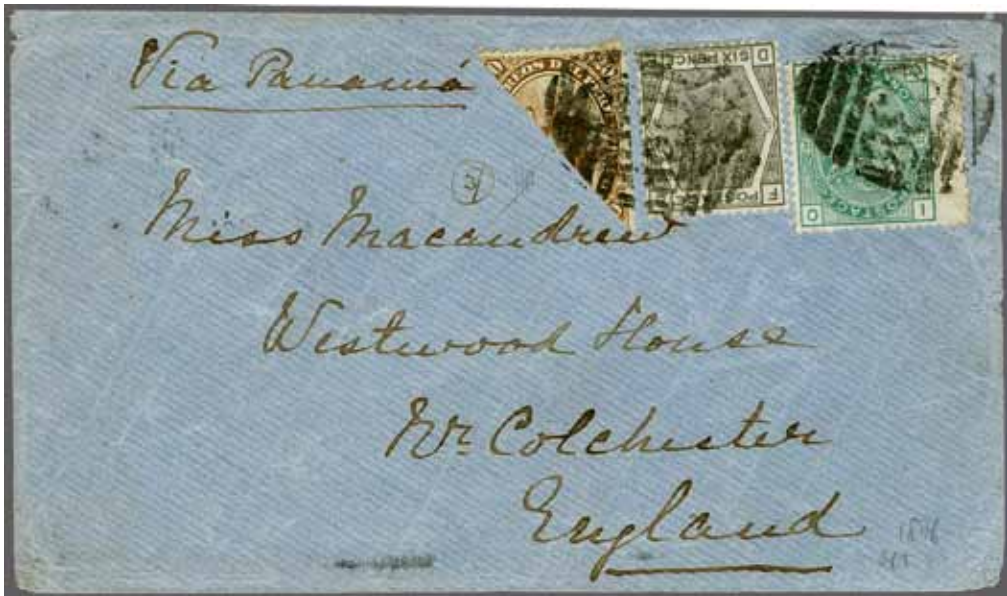 Via Panamá
D SIX PENCE
F POS
I O
Miss Macandrew
Westwood House
Nr. Colchester
England